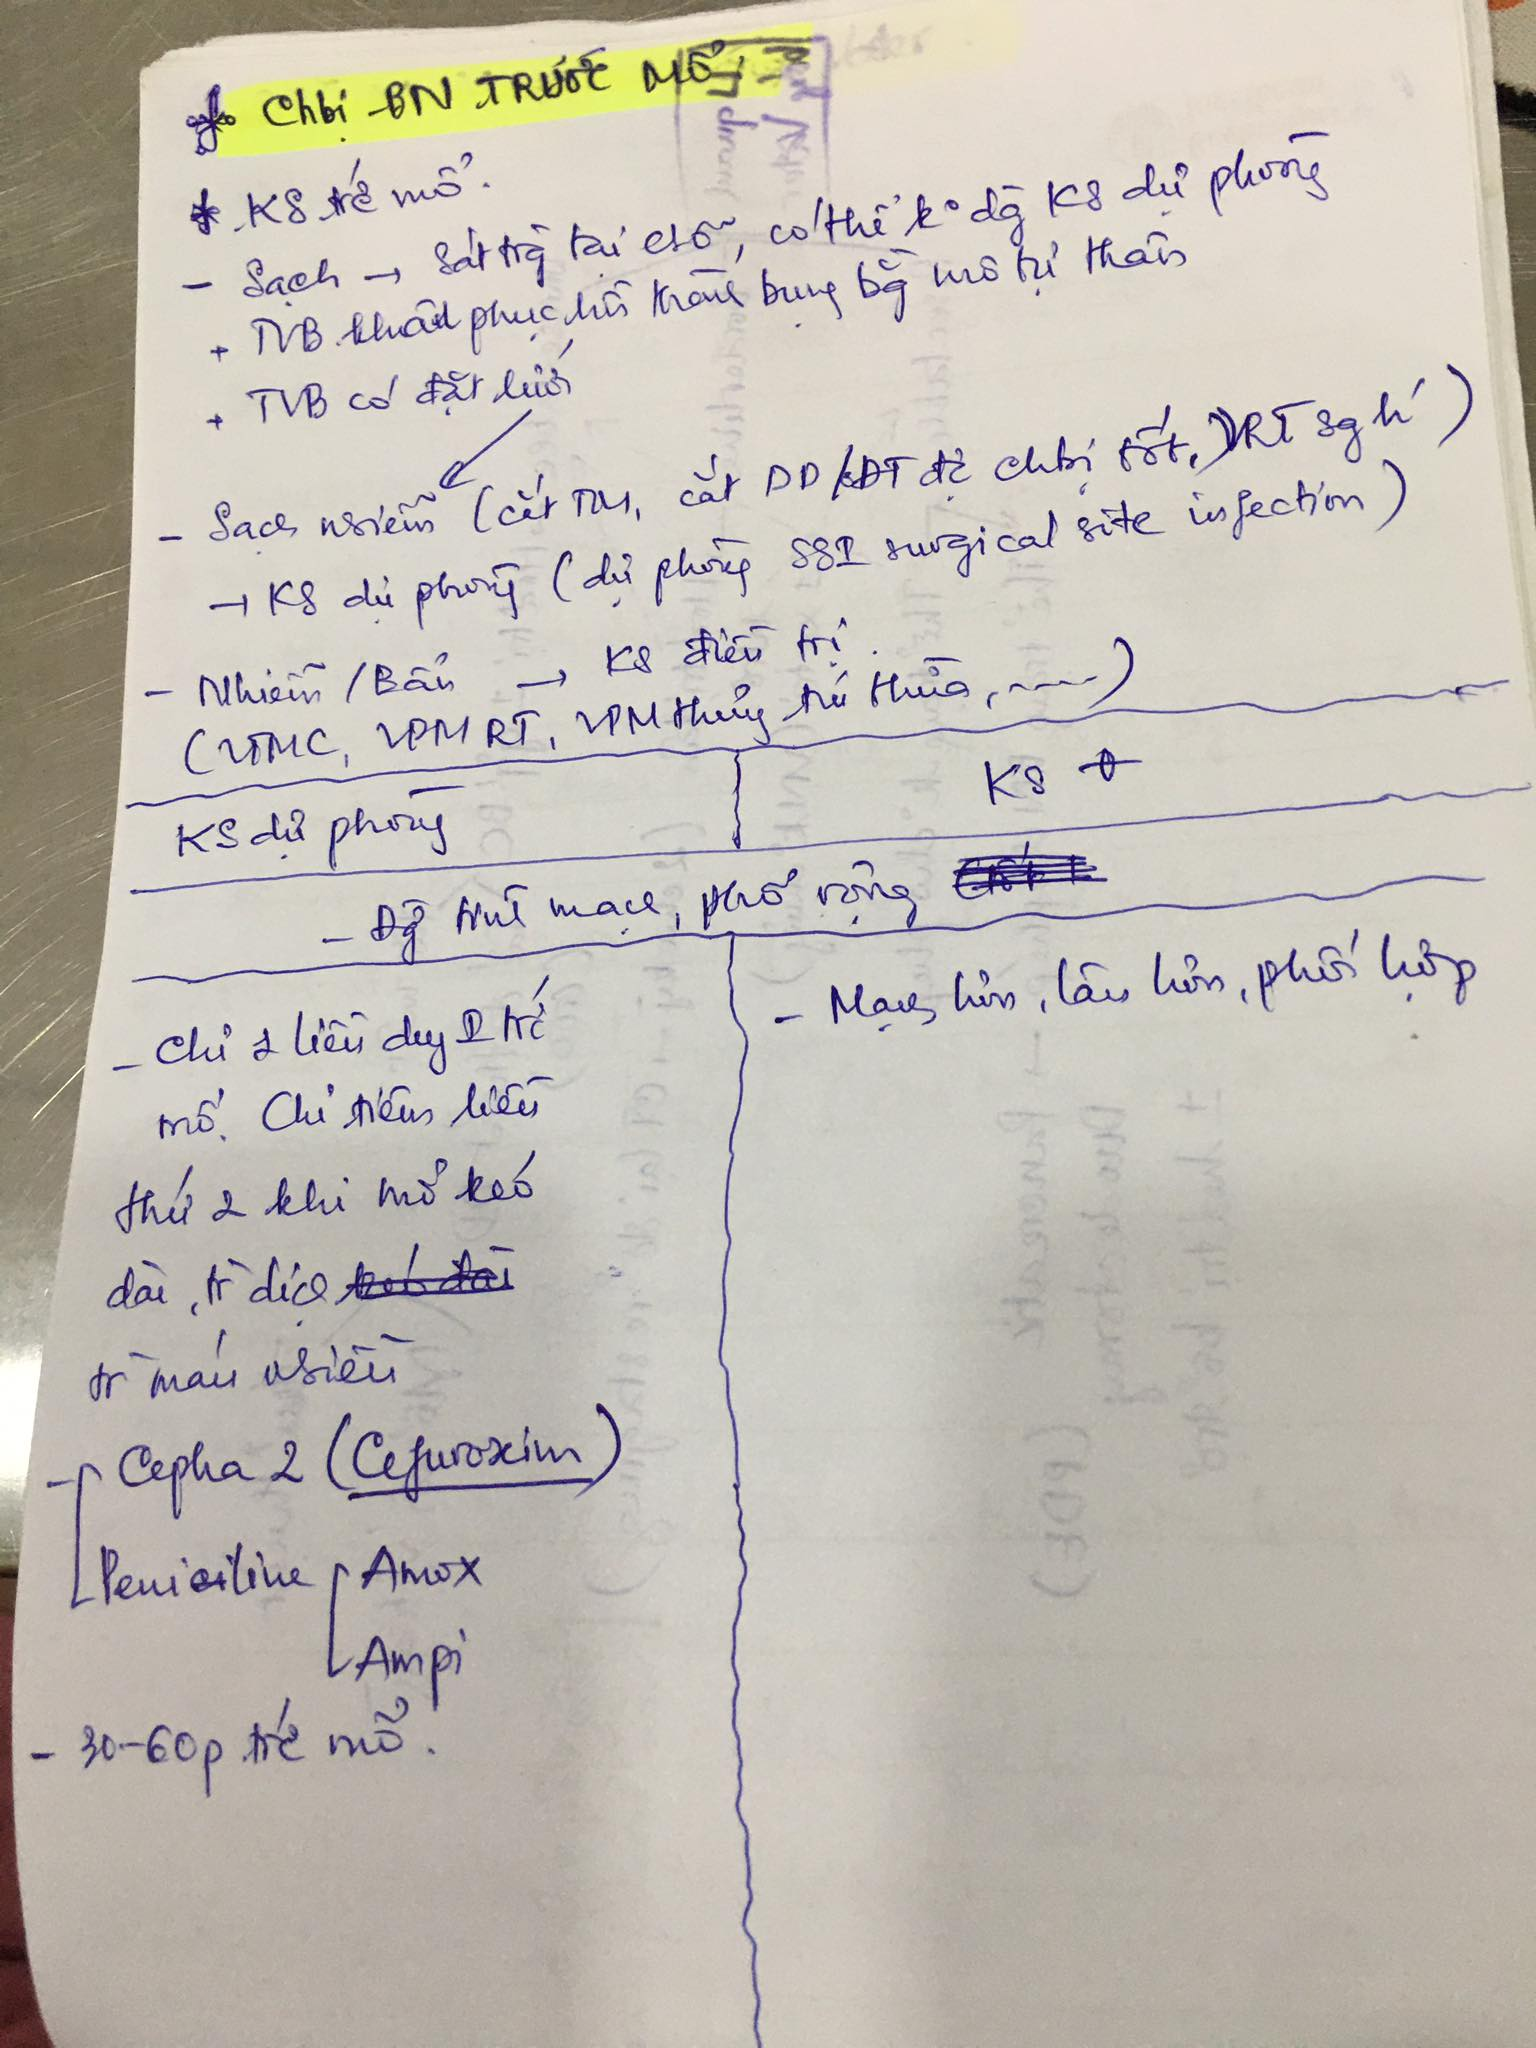 * Chbị BN TRƯỚC MỔ
* KS trc mổ.
- Sạch → sát trg tại chỗ, có thể k° dg KS dự phòng
+ TVB khâu phục hồi thành bụng bg mô tự thân
+ TVB có đặt lưới
- Sạch nhiễm (cắt TM, cắt DD/ĐT đc chbị tốt, VRT sg h')
→ KS dự phòng (dự phòng SSI surgical site infection)
- Nhiễm/Bẩn → KS điều trị.
(VTMC, VPMRT, VPM thủng túi thừa, ....)
KS dự phòng
KS
- Dg tĩnh mạch, phổ rộng
- Chỉ 1 liều duy I trc
mổ. Chỉ tiêm liều
thứ 2 khi mổ kéo
dài, tr dịch
tr máu nhiều
- Cepha 2 (Cefuroxim)
Peniciline
Amox
Ampi
- 30-60p trc mổ.
- Mạnh hơn, lâu hơn, phối hợp